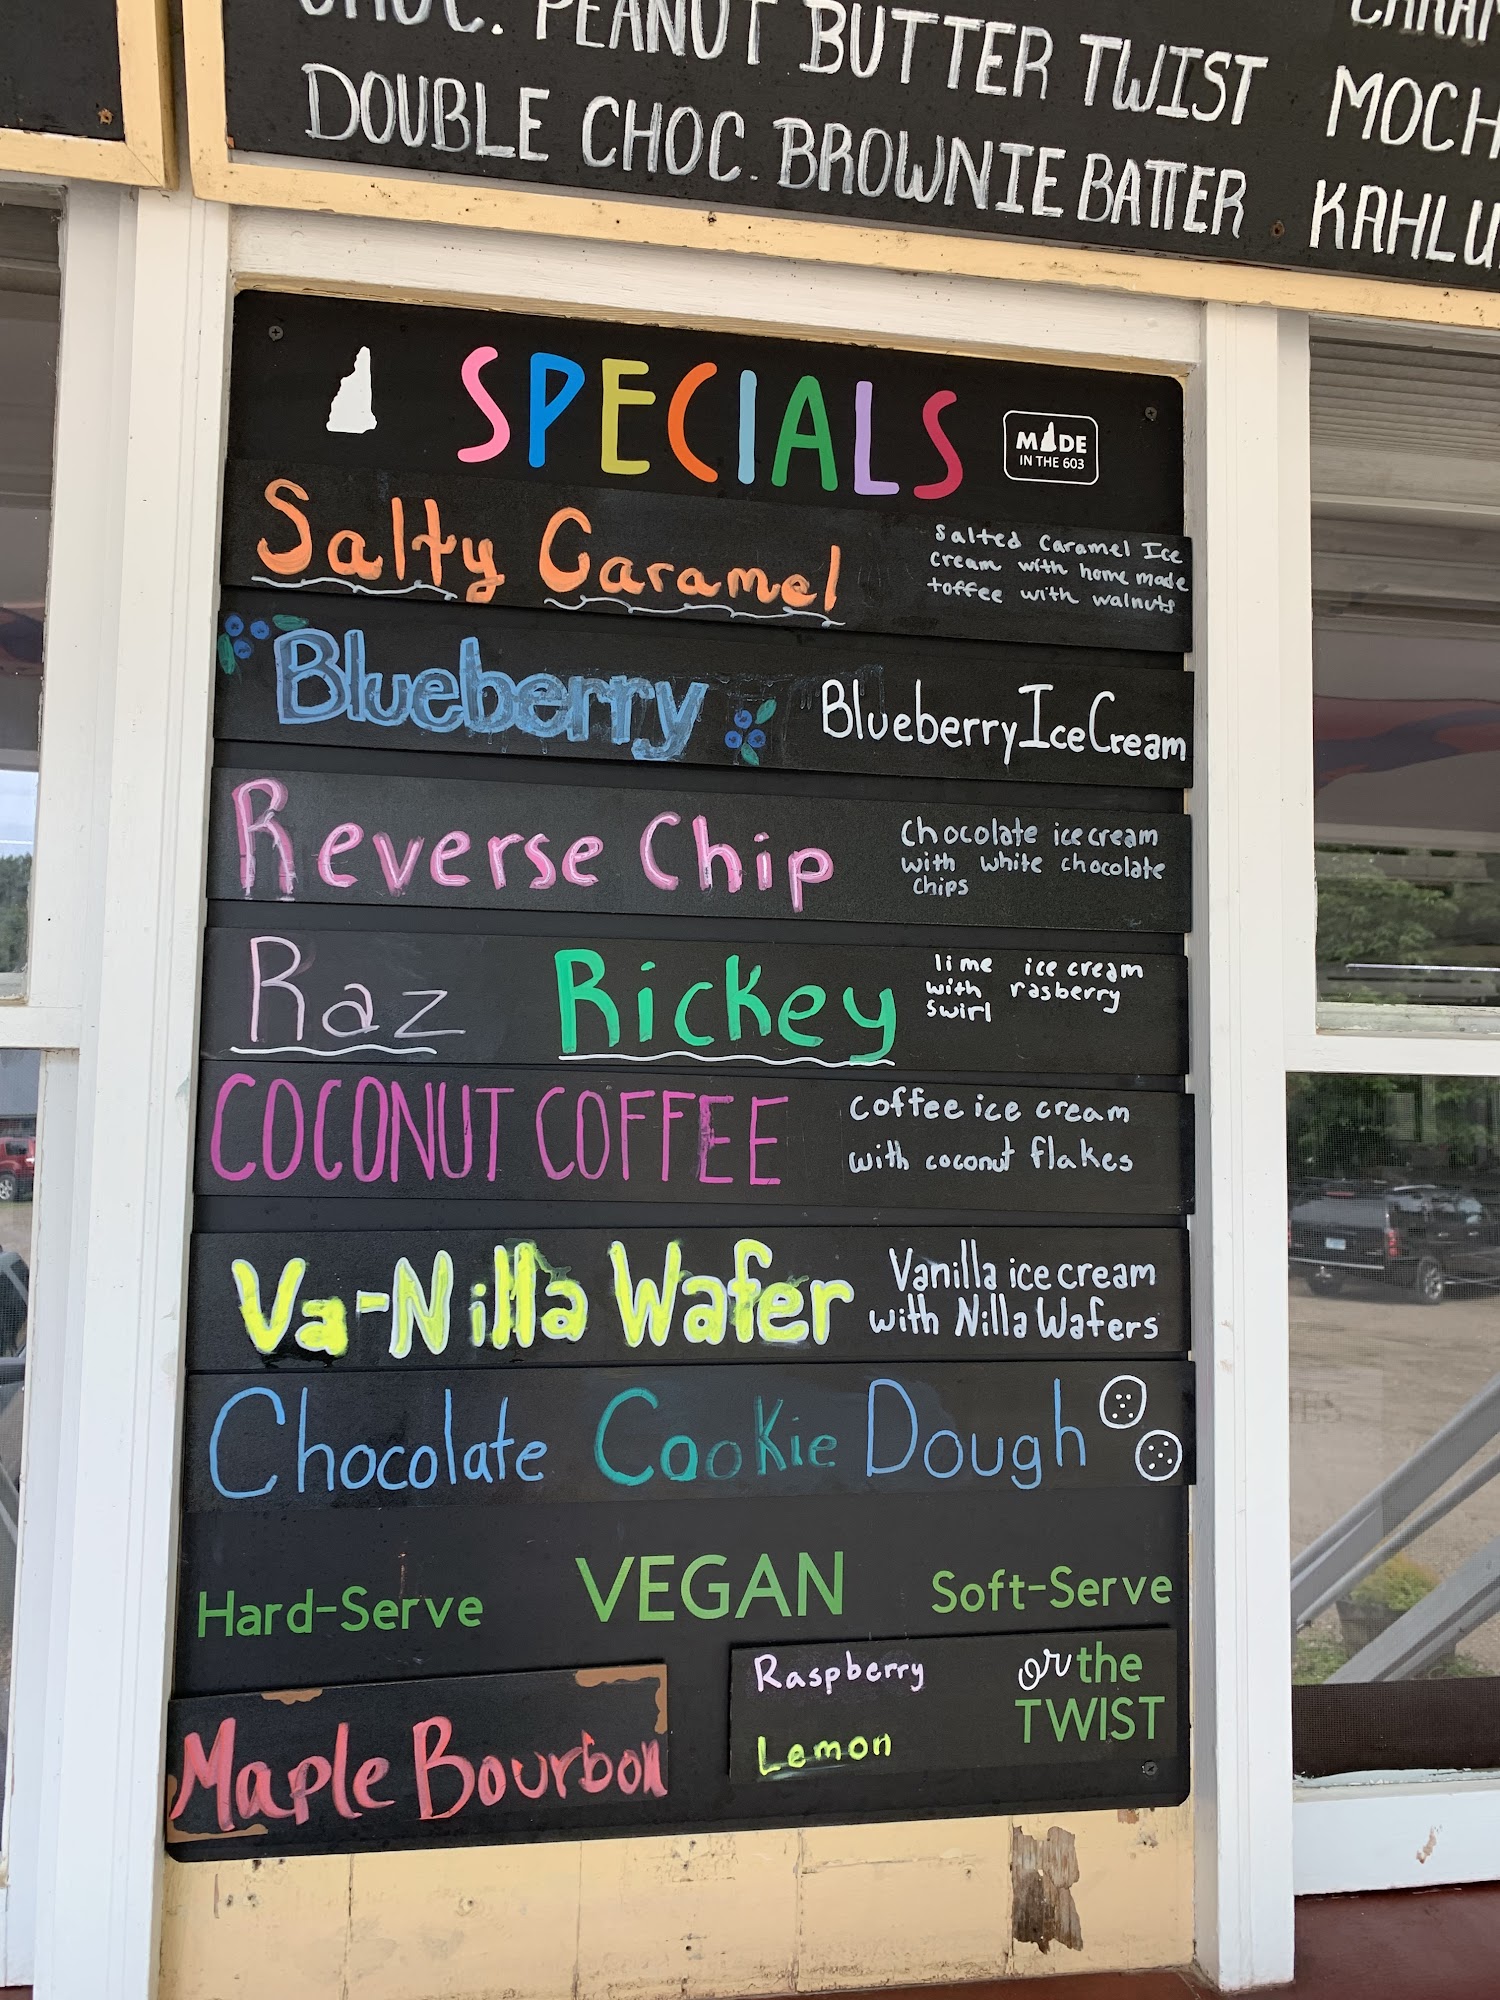 CHOC. PEANUT BUTTER TWIST
DOUBLE CHOC. BROWNIE BATTER
SPECIALS
MADE
IN THE 603
Salty Caramel
Salted Caramel Ice
cream with home made
toffee with walnuts
Blueberry
Blueberry Ice Cream
Reverse Chip
Chocolate ice cream
with white chocolate
chips
Raz Rickey
lime ice cream
with rasberry
swirl
COCONUT COFFEE
coffee ice cream
with coconut flakes
Va-Nilla Wafer
Vanilla ice cream
with Nilla Wafers
Chocolate Cookie Dough
Hard-Serve VEGAN Soft-Serve
Maple Bourbon
Raspberry
Lemon
or the
TWIST